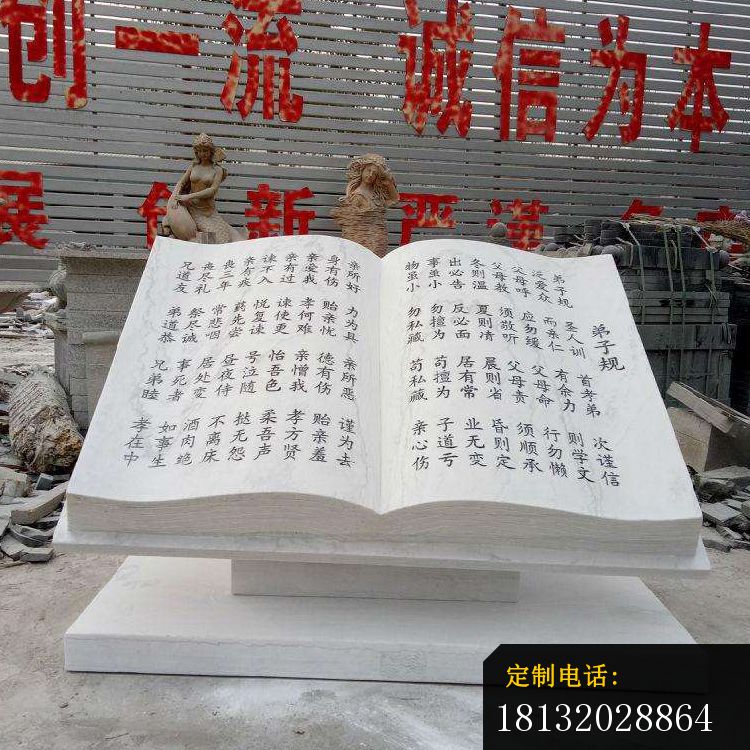 创一流 诚信为本
展 创新 严谨
弟子规
弟子规 圣人训 首孝弟 次谨信
泛爱众 而亲仁 有余力 则学文
父母呼 应勿缓 父母命 行勿懒
父母教 须敬听 父母责 须顺承
冬则温 夏则清 晨则省 昏则定
出必告 反必面 居有常 业无变
事虽小 勿擅为 苟擅为 子道亏
物虽小 勿私藏 苟私藏 亲心伤
亲所好 力为具 亲所恶 谨为去
身有伤 贻亲忧 德有伤 贻亲羞
亲爱我 孝何难 亲憎我 孝方贤
亲有过 谏使更 怡吾色 柔吾声
谏不入 悦复谏 号泣随 挞无怨
亲有疾 药先尝 昼夜侍 不离床
丧三年 常悲咽 居处变 酒肉绝
丧尽礼 祭尽诚 事死者 如事生
兄道友 弟道恭 兄弟睦 孝在中
定制电话:
18132028864